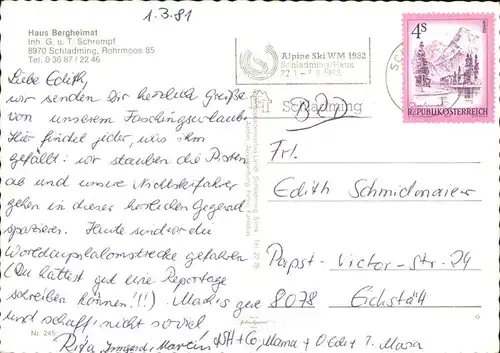 1.3.81
Haus Bergheimat
Inh. G. u. T. Schrempf
8970 Schladming, Rohrmoos 85
Tel. 0 36 87 / 22 46
Alpine Ski WM 1982
Schladming/Haus
4 S
REPUBLIK ÖSTERREICH
Schladming
BRD
Liebe Edith,
wir senden Dir herzliche Grüße
von unserem Faschingsurlaub.
Hier findet jeder, was ihm
gefällt: wir stauben die Pisten
ab und unsere Nichtskifahrer
gehen in dieser herrlichen Gegend
spazieren. Heute sind wir die
Weltcupslalomstrecke gefahren
(Du hättest gut eine Reportage
schreiben können!!!) Mach's gut
und schaff' nicht so viel
Rita, Irmgard, Martin,
Mama +
Nr. 245
Frl.
Edith Schmidmaier
Papst-Victor-Str. 24
8078 Eichstätt